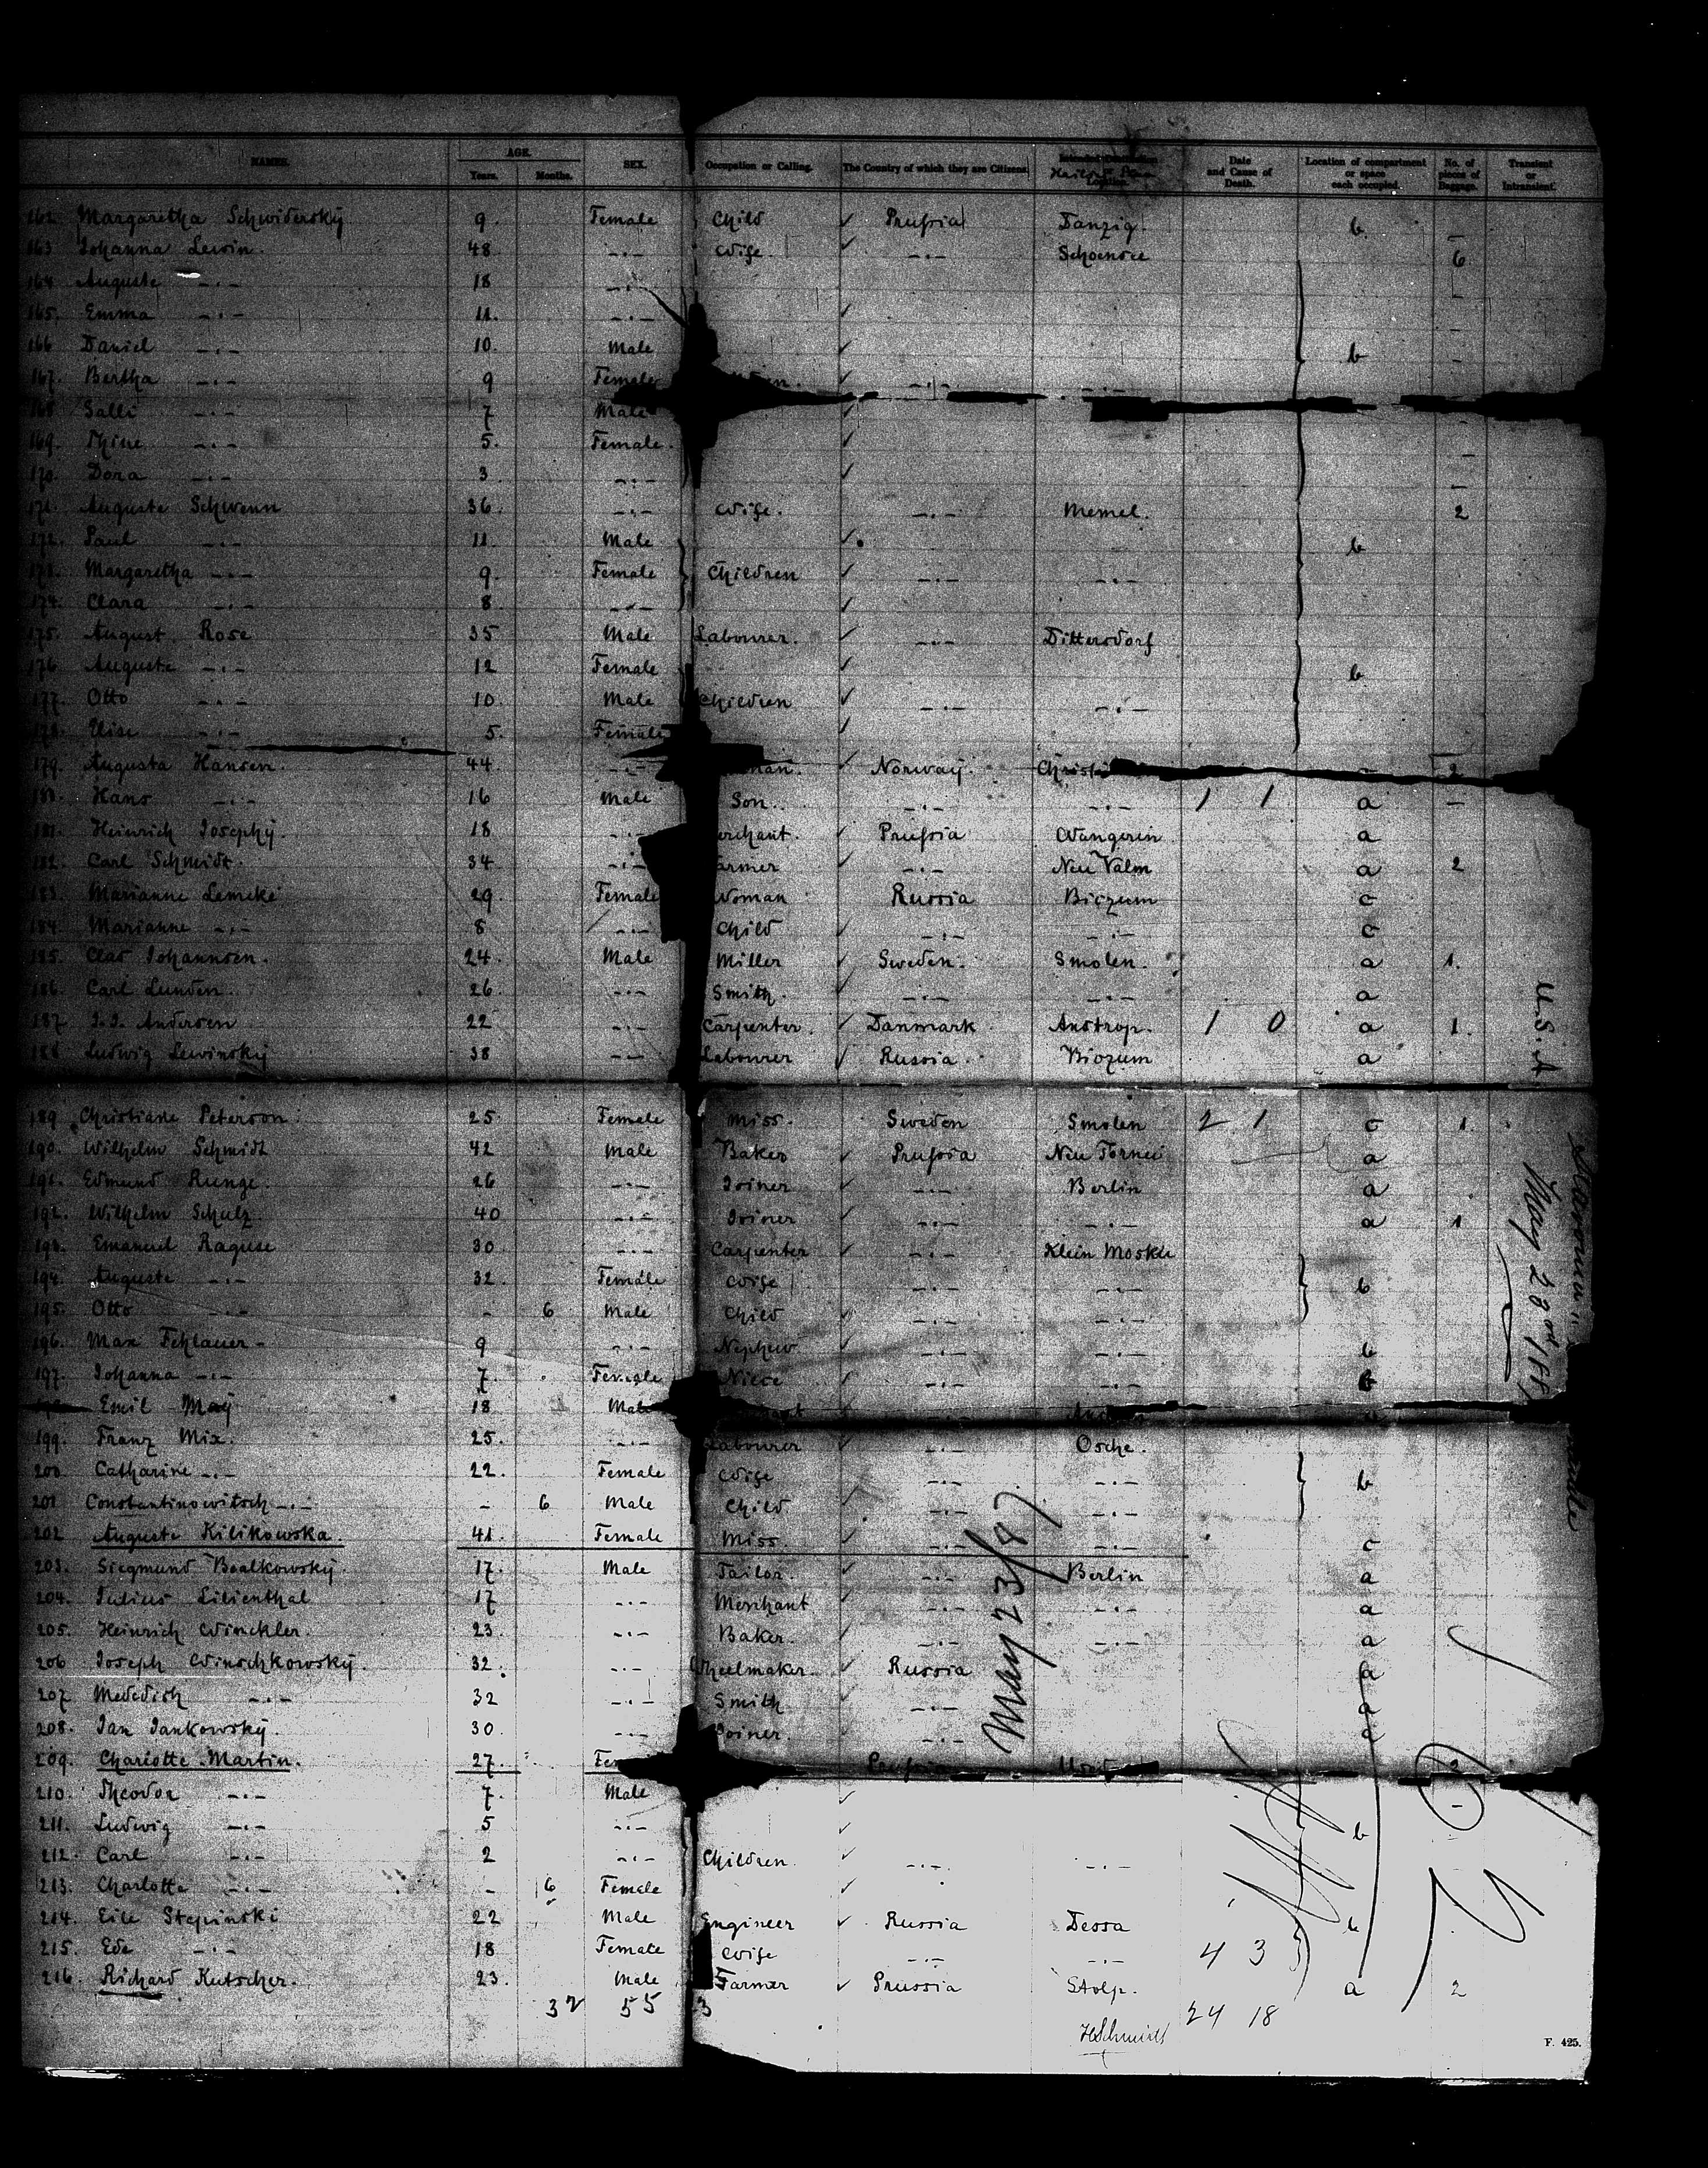 NAMES. AGE. Years. Months. SEX. Occupation or Calling. The Country of which they are Citizens. Intended Destination or Location. Date and Cause of Death. Location of compartment or space each occupied. No. of pieces of Baggage. Transient or Intransient.
162. Margaretha Schwidersky 9. Female Child Prussia Danzig. b. –
163 Johanna Lewin. 48 -"- Wife. -"- Schoensee 6
164 Auguste -"- 18 -"- -
165. Emma -"- 11. -"- -
166 Daniel -"- 10. Male b -
167. Bertha -"- 9 Female -"- -"-
168 Salli -"- 7 Male -
169. -"- 5. Female. -
170. Dora -"- 3 -"- –
171. Auguste Schwenn 36. -"- Wife. -"- Memel. 2
172. Paul -"- 11. Male b
173. Margaretha -"- 9. Female Children -"- -"-
174. Clara -"- 8. -"-
175. August Rose 35 Male Labourer. -"- Dittersdorf
176 Auguste -"- 12 Female b
177. Otto -"- 10. Male Children -"- -"-
178. Elise -"- 5. Female
179. Augusta Hansen. 44. -"- Norway. 2
180. Hans -"- 16 Male Son. -"- -"- 1 1 a –
181. Heinrich Josephy. 18 -"- Merchant. Prussia Wangerin a
182. Carl Schmidt. 34 -"- Farmer -"- Neu Valm a 2
183. Marianne Lemcke 29 Female Woman Russia Biezum c
184. Marianne -"- 8 -"- Child -"- -"- c
185. Clas Johannsen. 24. Male Miller Sweden. Smolen. a 1.
186. Carl Lunden. 26 -"- Smith. -"- -"- a
187. J. J. Andersen 22 -"- Carpenter. Danmark. 1 0 a 1.
188 Ludwig Lewinsky 38 -"- Labourer Russia. Biezum a
U. S. A
189. Christiane Peterson 25 Female Miss. Sweden Smolen 2 1 c 1.
190. Wilhelm Schmidt 42 Male Baker Prussia Neu Tornei a
191. Edmund Runge. 26 -"- Joiner -"- Berlin a
192. Wilhelm Schulz. 40 -"- Joiner -"- -"- a 1
193. Emanuel Raguse 30 -"- Carpenter -"- Klein Moskle
194. Auguste -"- 32. Female Wife -"- -"- b
195. Otto -"- - 6 Male Child -"- -"-
196. Max Fehlauer - 9 -"- Nephew -"- -"- b
197. Johanna -"- 7. Female Niece -"- -"- b
Emil May 18 Male
199. Franz Mix. 25. -"- Labourer -"- Osche.
200 Catharine -"- 22. Female Wife -"- -"- b
201 Constantinowitsch -"- - 6 Male Child -"- -"-
202 Auguste Kilikowska. 41. Female Miss. -"- -"- c
203. Siegmund Baalkowsky. 17. Male Tailor. -"- Berlin a
204. Julius Lilienthal 17 -"- Merchant -"- -"- a
205. Heinrich Winckler. 23. -"- Baker. -"- -"- a
206 Joseph Winschkowsky. 32. -"- Wheelmaker. Russia a
207. -"- 32 -"- Smith -"- a
208. Jan Jankowsky. 30. -"- Joiner. -"- a
209. Charlotte Martin. 27. Prussia
210. Theodor -"- 7. Male -
211. Ludwig -"- 5 -"- b
212. Carl -"- 2 -"- Children. -"- -"-
213. Charlotte -"- - 6 Female
214. Stepinski 22 Male Engineer Russia Dessa b
215. -"- 18 Female Wife -"- -"- 4 3
216. Richard Kutscher. 23. Male Farmer Prussia Stolp. a 2
32 55 3 24 18
HSchmidt
May 23/87
F. 425.